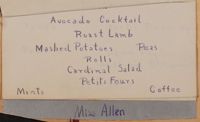 Avocado Cocktail
Roast Lamb
Mashed Potatoes Peas
Rolls
Cardinal Salad
Petits Fours
Mints Coffee
Miss Allen